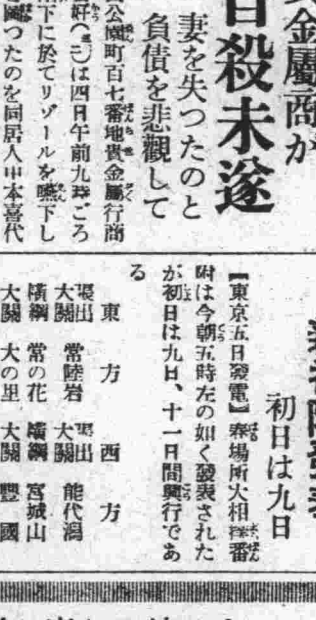 金屬商が
自殺未遂
妻を失つたのと
負債を悲觀して
公園町百七番地貴金屬行商
は四日午前九時ごろ
下に於てリゾールを嚥下し
つたのを同居人中本喜代
初日は九日
【東京五日發電】春場所大相撲番
附は今朝五時左の如く發表された
が初日は九日、十一日間興行であ
る
東方 西方
張出大關 常陸岩 張出大關 能代潟
横綱 常の花 横綱 宮城山
大關 大の里 大關 豐國